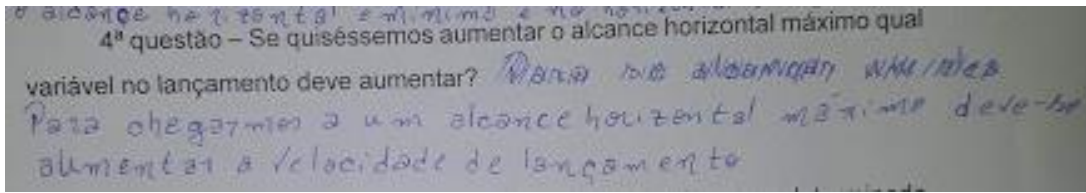 o alcance horizontal é mínimo e no
4ª questão – Se quiséssemos aumentar o alcance horizontal máximo qual
variável no lançamento deve aumentar? Para
Para chegarmos a um alcance horizontal máximo deve-se
aumentar a velocidade de lançamento